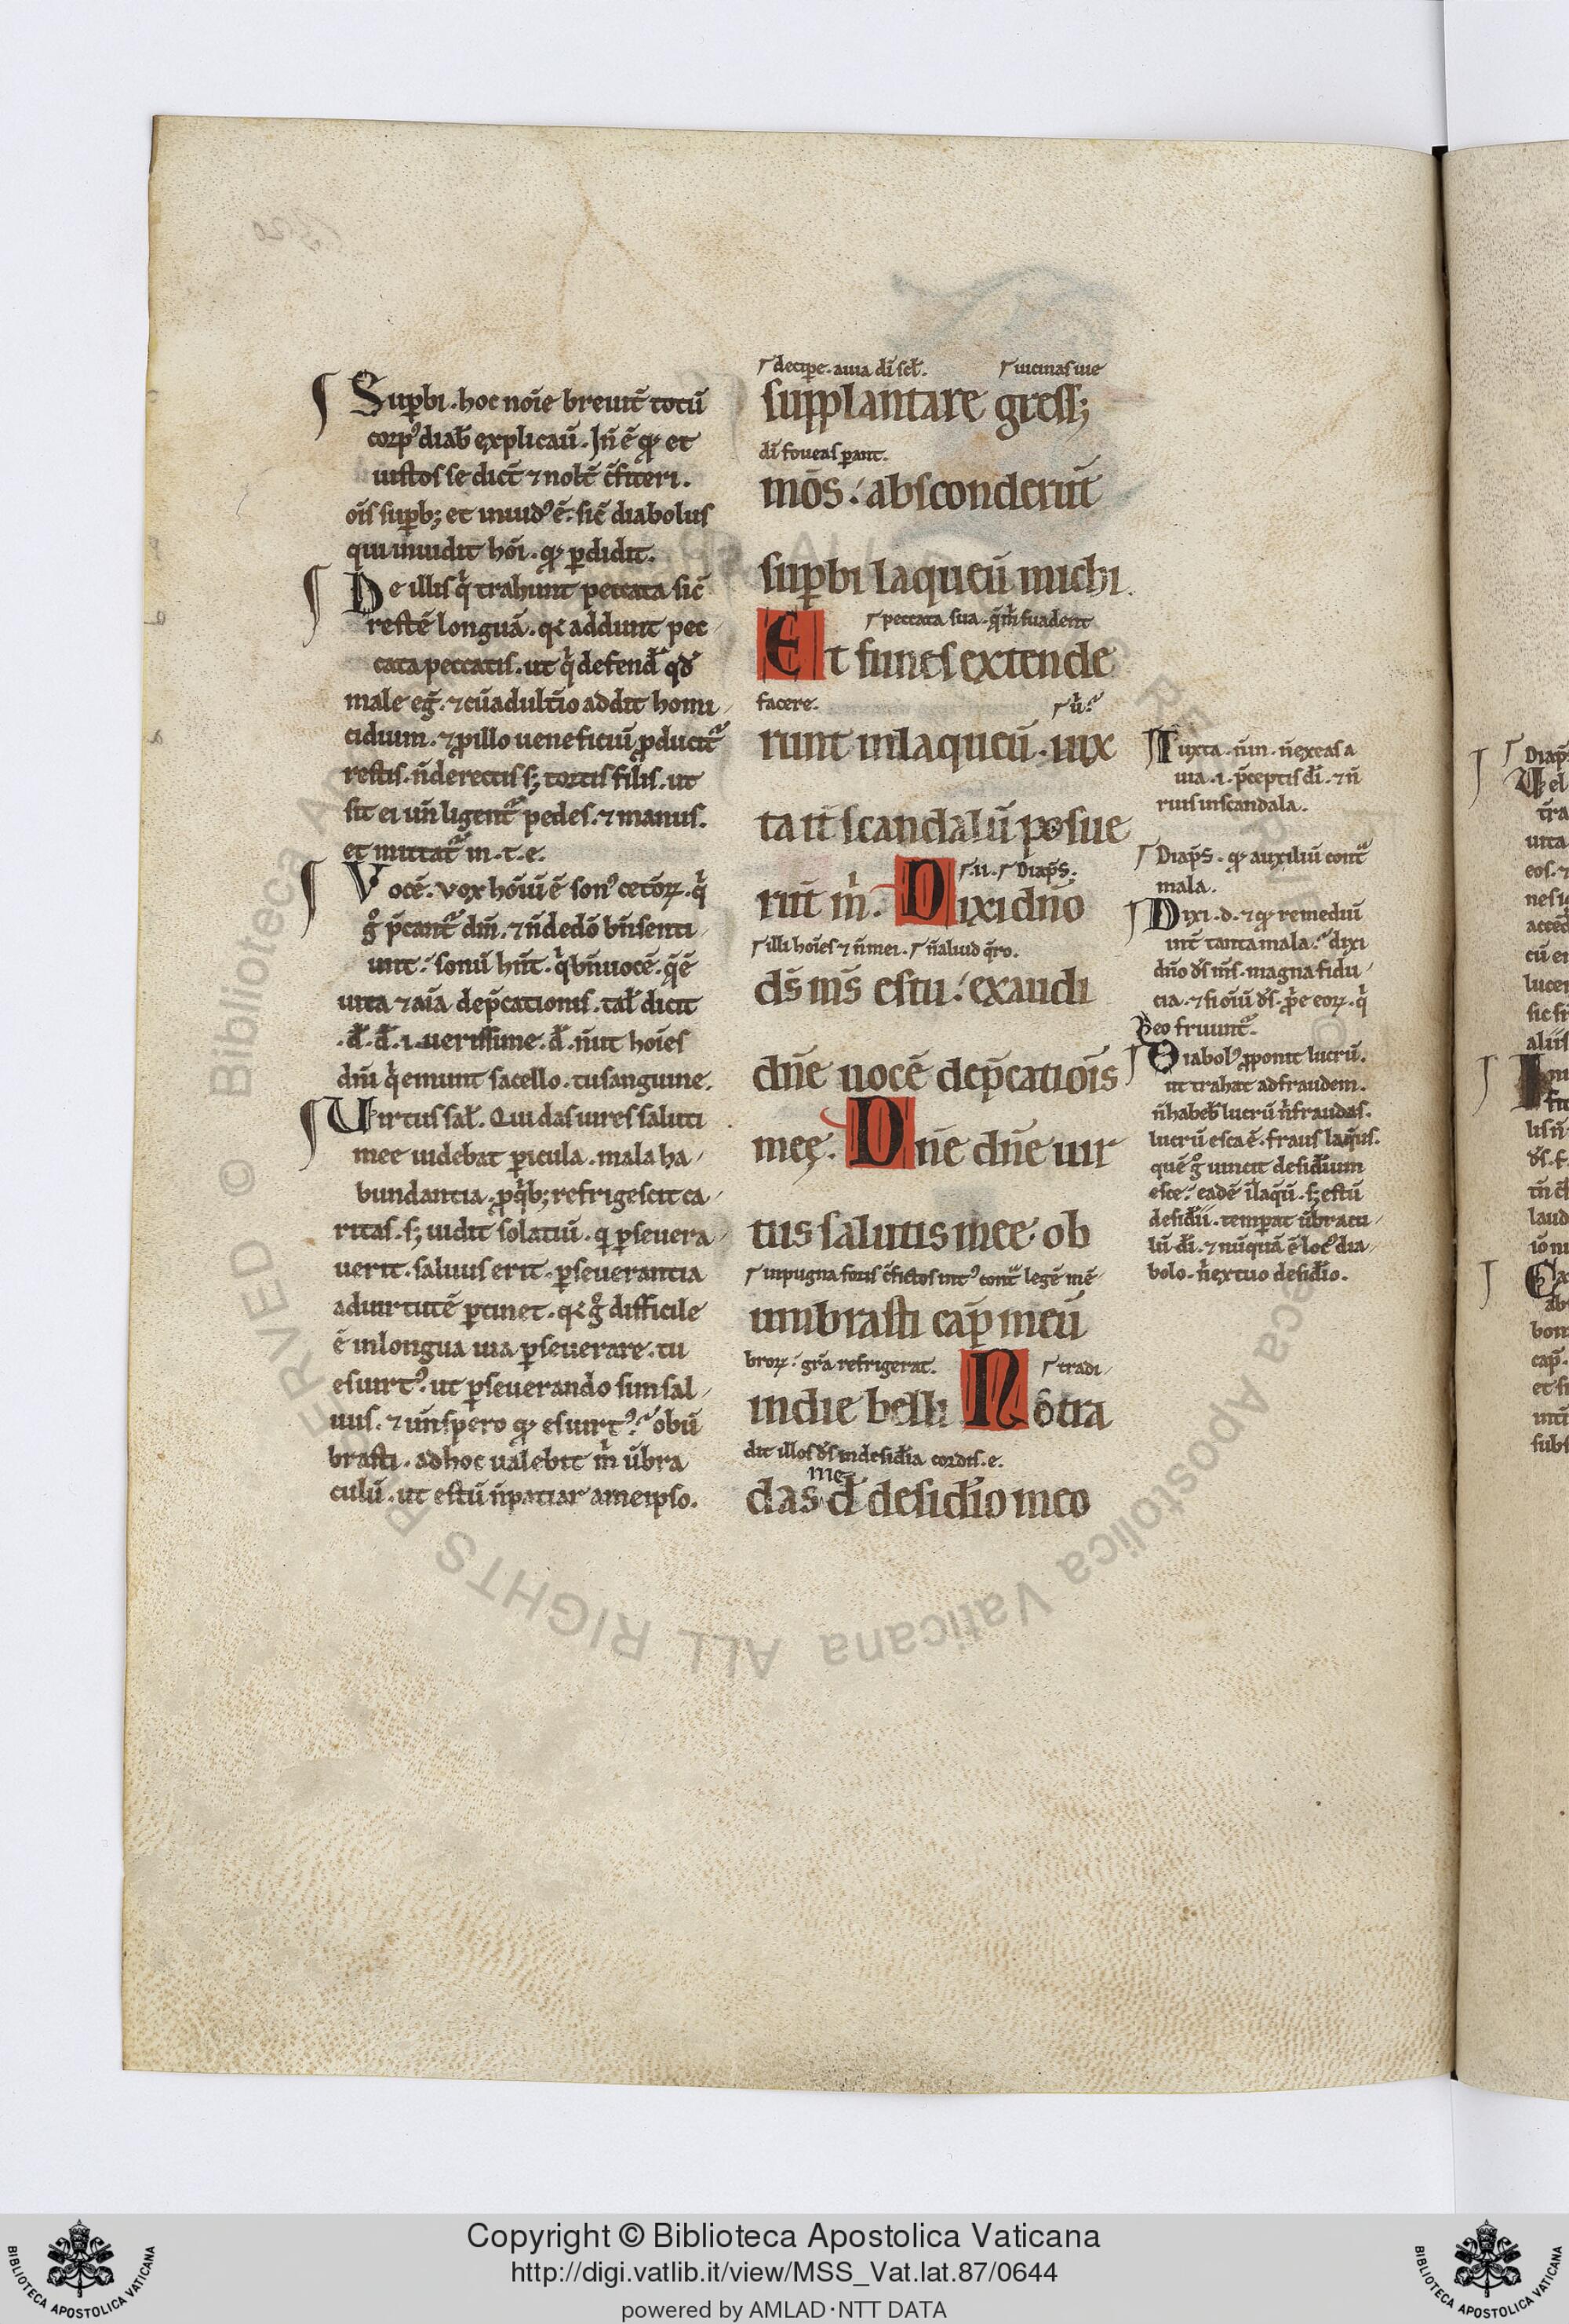 Suꝑbi. hoc noīe breuit̄ totū
corpꝰ diab̄ explicaū. Jn̄ ē qꝫ et
iustos se dict̄ ⁊ nolt̄ c̄fiteri.
oīs suꝑbꝫ et inuidꝰ ē. sic̄ diabolus
qui inuidit hōi. qꝫ ꝑdidit.
De illis q̄ trahunt peccata sic̄
restē longuā. qꝛ addunt pec
cata peccatis. ut q̄ defend̄ qđ
male eḡ. ⁊ cū adult̄io addit homi
cidium. ⁊ ꝓ illo ueneficiū ꝓducit᷑
restis. n̄ de rectis sꝫ tortis filis. ut
sit ei un̄ ligent᷑ pedes. ⁊ manus.
et mittat᷑ in. t. e.
Vocē. vox hōiū ē sonꝰ cetōꝝ. q̄
g̊ p̄cant᷑ dm̄. ⁊ n̄ de dō bn̄ senti
unt. sonū hn̄t. q̄ bn̄ uocē. q̄ ē
uita ⁊ aīa dep̄cationis. tal̄ dicit
.đ. đ. i. uerissime. đ. n̄ ut hoīes
dn̄i q̄ emunt sacello. tu sanguine.
Virtus sal̄. Qui das uires saluti
mee uidebat ꝑicula. mala ha
bundantia. ꝓ q̄bꝫ refrigescit ca
ritas. sꝫ uidit solatiū. q ꝑseuera
uerit. saluus erit. ꝑseuerantia
ad uirtutē ꝑtinet. qꝛ g̊ difficile
ē in longua uia ꝑseuerare. tu
es uirtꝰ. ut ꝑseuerando sim sal
uus. ⁊ un̄ spero qꝫ es uirtꝰ. obū
brasti. ad hoc ualebit m̄ ūbra
culū. ut estū n̄ patiar a me ipso.
decipe. a uia dī scl̄. uicinas uie
supplantare gressꝫ
dī foueas parant.
mōs. absconderūt
suꝑbi laqueū michi.
peccata sua. q̄ m̄ suadent
Et funes extende
facere.
runt in laqueū. iux
ta it̄ scandalū posue
.ii. Diap̄s.
rūt m̄. Dixi dn̄o
illi hoīes ⁊ n̄ mei. n̄ aliud q̄ro.
ds̄ ms̄ es tu. exaudi
dn̄e uocē dep̄catiois
meę. Dn̄e dn̄e uir
tus salutis mee. ob
inpugna foris c̄fictos intꝰ cont᷑ legē mē
umbrasti cap̄ meū
broꝝ. gr̄a refrigerat. tradi
in die belli Nō tra
dit illos ds̄ in desid̄ia cordis. e.
me
das đ desid̄io meo
Iuxta. n̄ in. n̄ exeas a
uia. i. p̄ceptis dī. ⁊ n̄
ruis in scandala.
Diap̄s. qꝫ auxiliū cont᷑
mala.
Dixi. d. ⁊ qꝫ remediū
int̄ tanta mala. dixi
dn̄o ds̄ ms̄. magna fidu
cia. ⁊ si oīū ds̄. p̄e eoꝝ. q̄
deo fruunt᷑.
Diabolꝰ ꝓponit lucrū.
ut trahat ad fraudem.
n̄ habeb̄ lucrū n̄ fraudas.
lucrū esca ē. fraus laq̄us.
quē g̊ uincit desid̄ium
esce. cadē ī laq̄ū. sꝫ estū
desid̄ii. temꝑat ūbracu
lū dī. ⁊ nūquā ē locꝰ dia
bolo. n̄ ex tuo desid̄io.
Copyright © Biblioteca Apostolica Vaticana
http://digi.vatlib.it/view/MSS_Vat.lat.87/0644
powered by AMLAD·NTT DATA
BIBLIOTECA APOSTOLICA VATICANA
BIBLIOTECA APOSTOLICA VATICANA